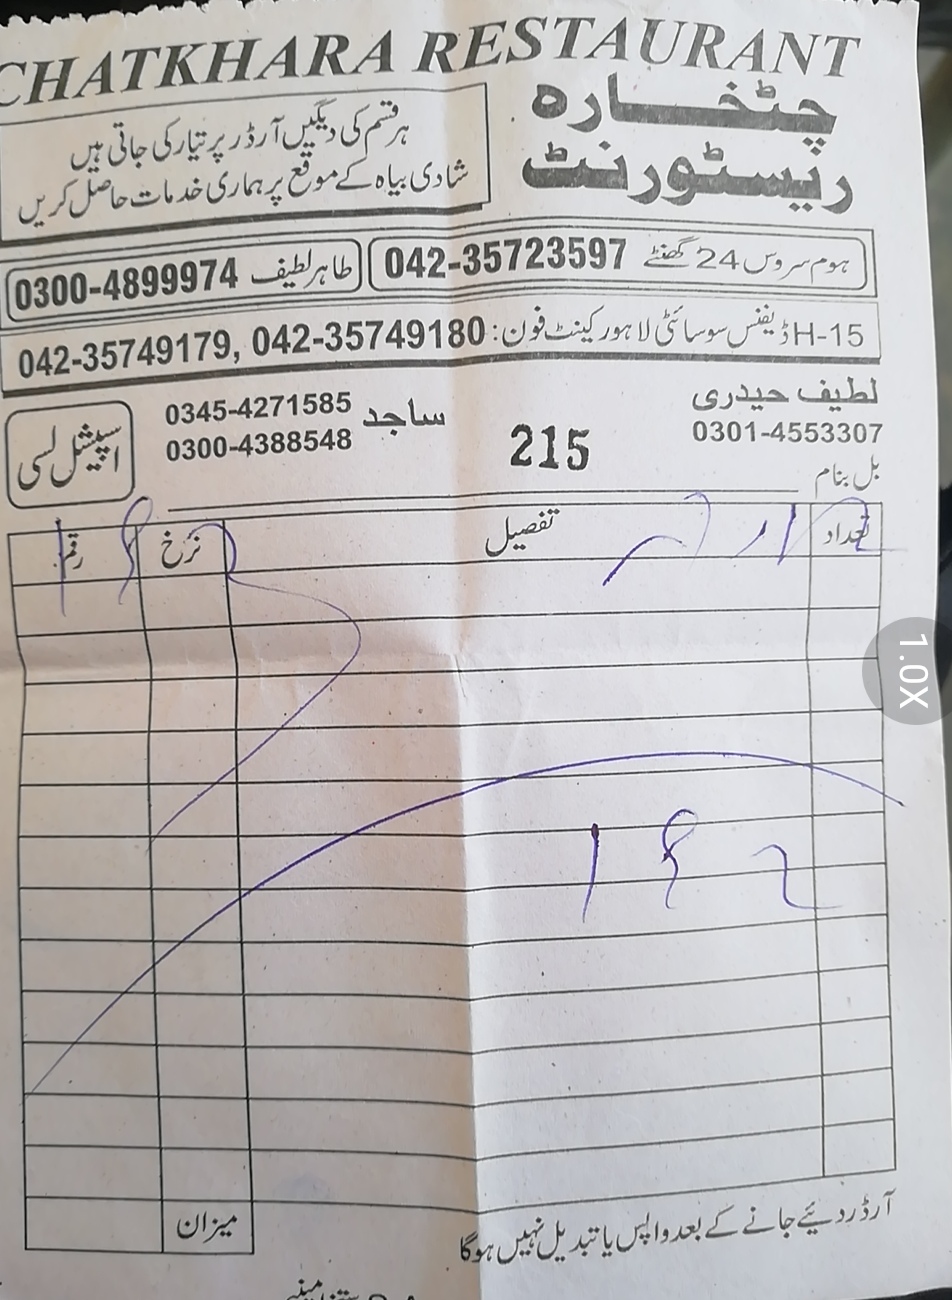 CHATKHARA RESTAURANT
چٹخارہ
ریسٹورنٹ
ہر قسم کی دیگیں آرڈر پر تیار کی جاتی ہیں
شادی بیاہ کے موقع پر ہماری خدمات حاصل کریں
ہوم سروس 24 گھنٹے 042-35723597
طاہر لطیف 0300-4899974
H-15 ڈیفنس سوسائٹی لاہور کینٹ فون: 042-35749180 ,042-35749179
لطیف حیدری
0301-4553307
215
ساجد 0345-4271585
0300-4388548
اسپیشل لسی
بل بنام
تعداد تفصیل نرخ رقم
میزان
آرڈر دئیے جانے کے بعد واپس یا تبدیل نہیں ہوگا
1.0X